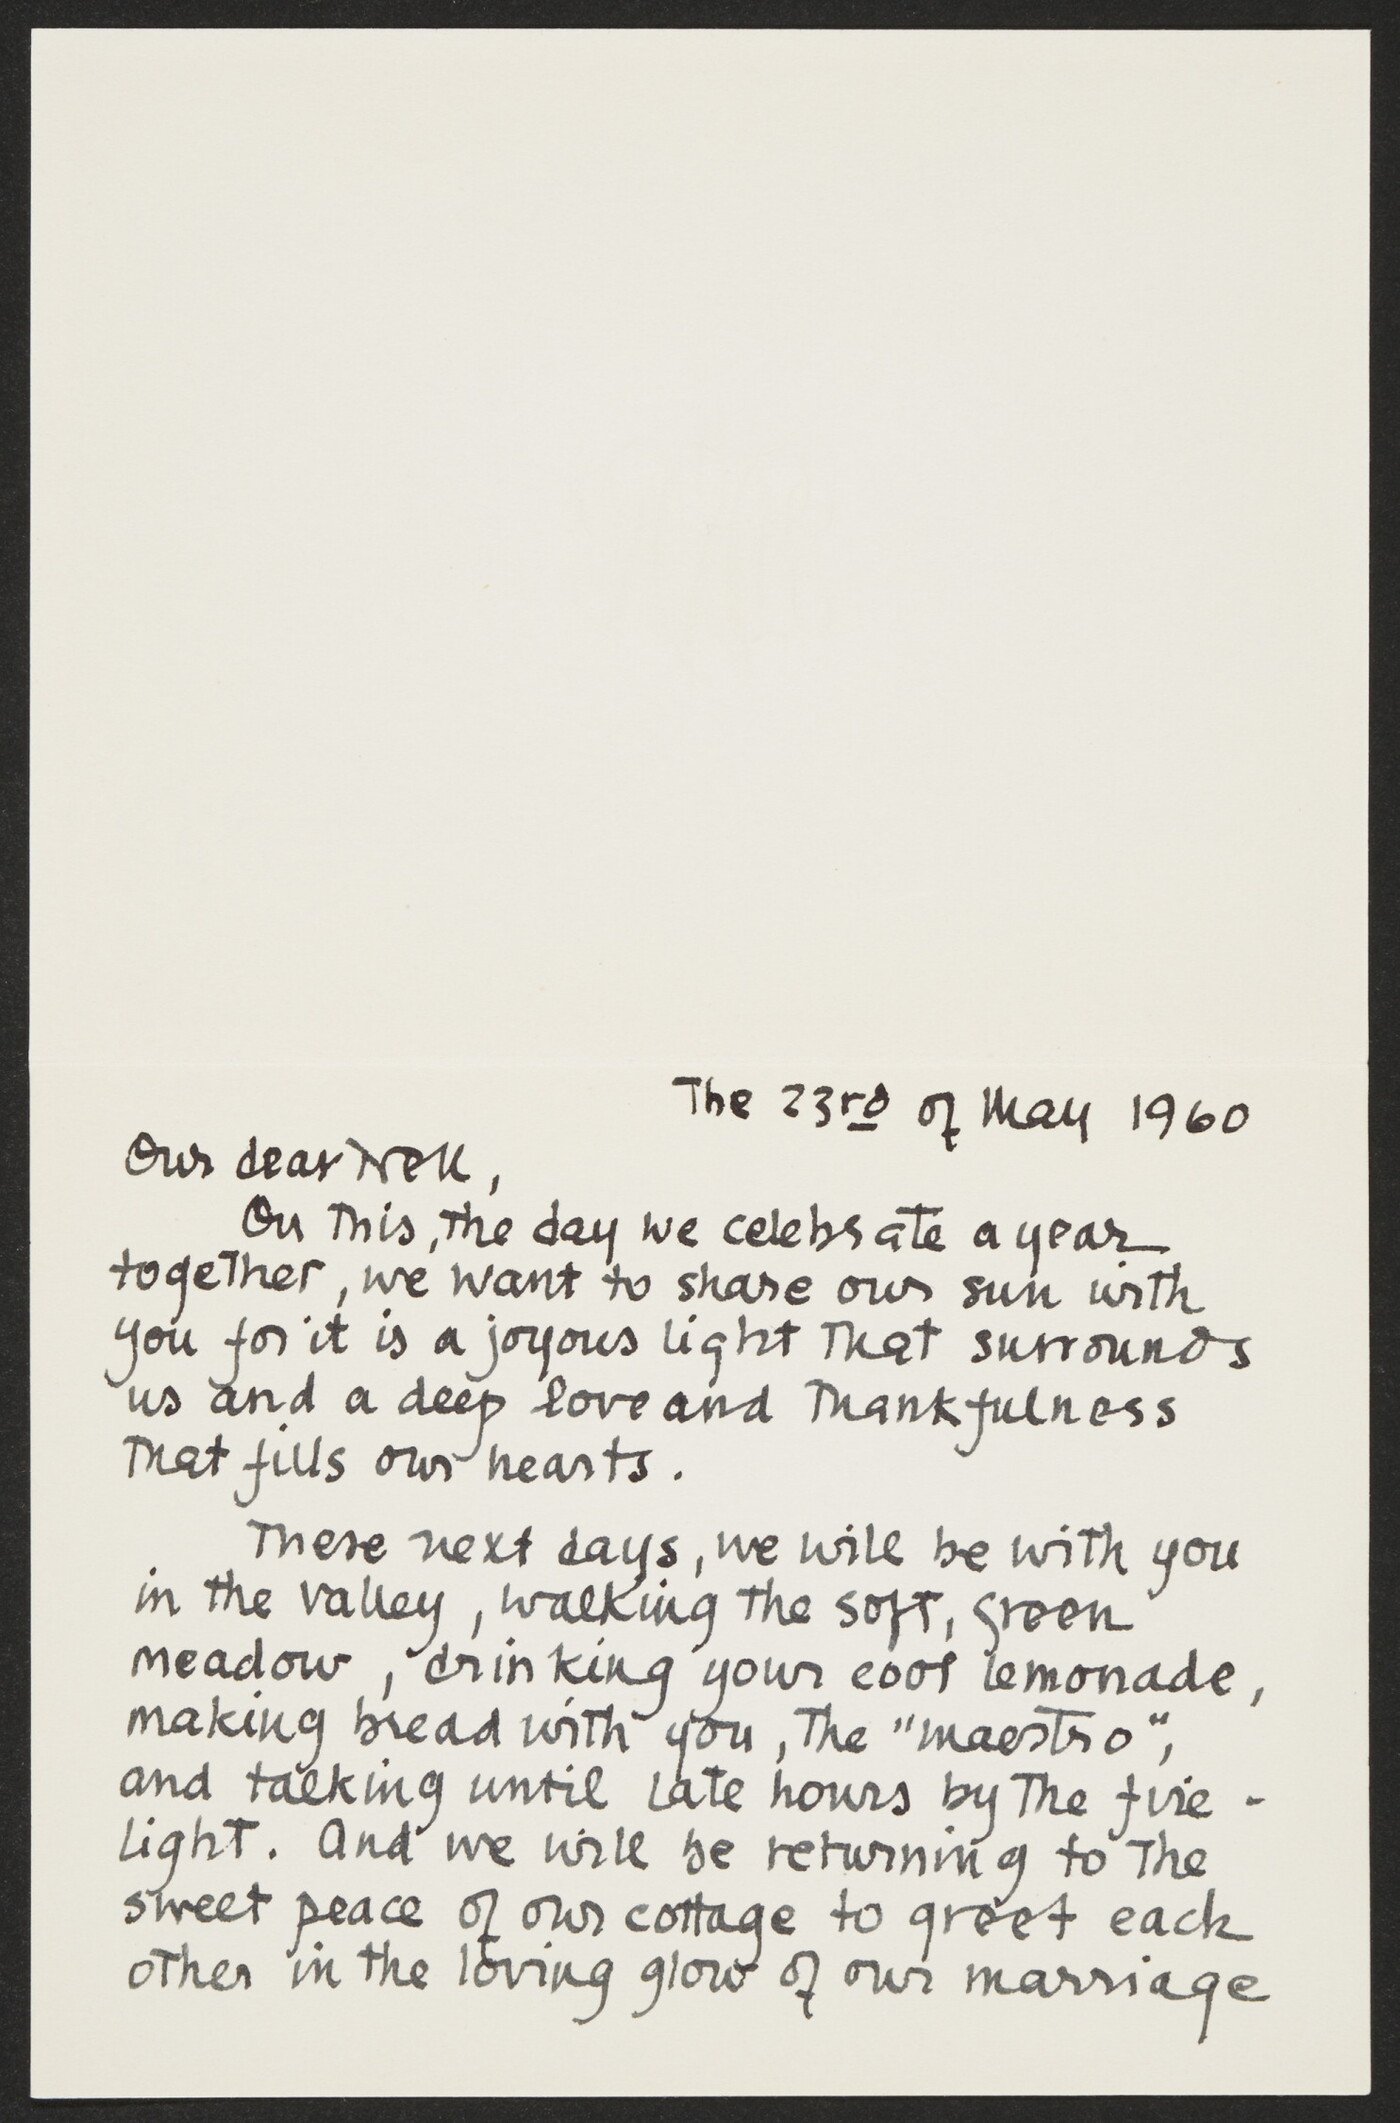 The 23rd of May 1960
Our dear Nell,
On this, the day we celebrate a year
together, we want to share our sun with
you for it is a joyous light that surrounds
us and a deep love and thankfulness
that fills our hearts.
These next days, we will be with you
in the valley, walking the soft, green
meadow, drinking your cool lemonade,
making bread with you, the "maestro",
and talking until late hours by the fire -
light. And we will be returning to the
sweet peace of our cottage to greet each
other in the loving glow of our marriage